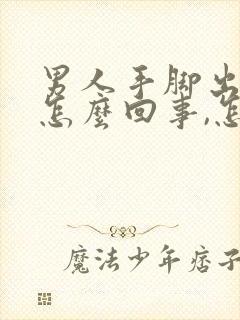 男人手脚出
怎麼回事,怎
魔法少年痞子